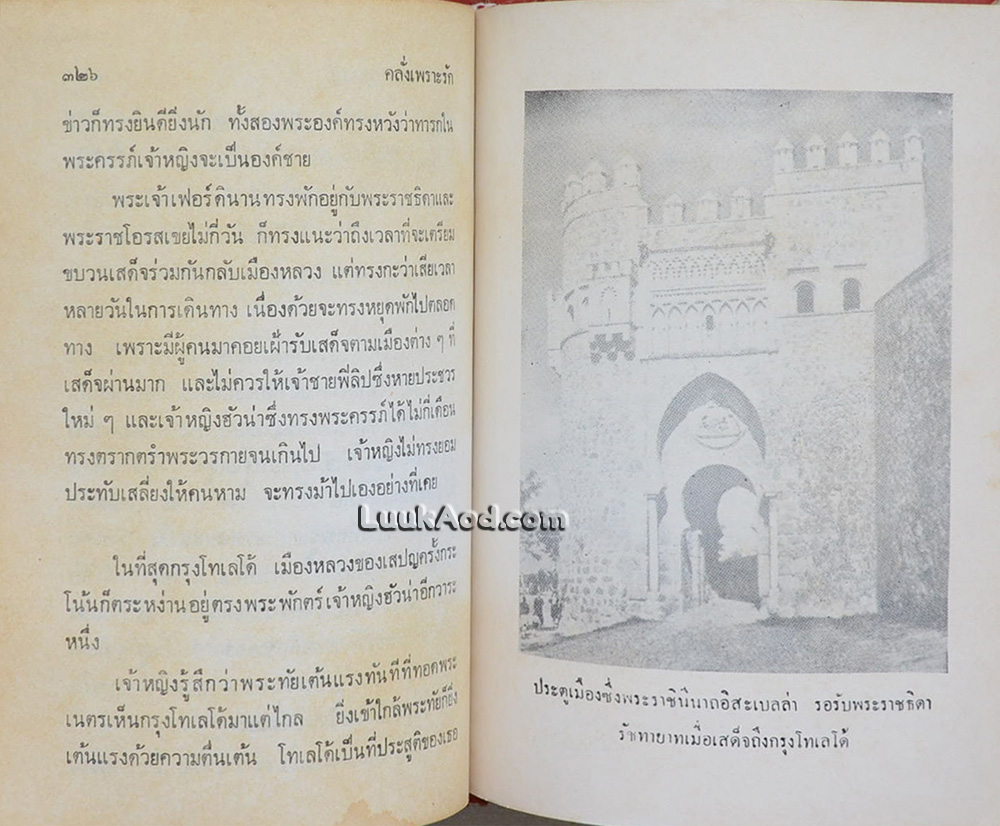 ๓๒๖ คลั่งเพราะรัก
ข่าวก็ทรงยินดียิ่งนัก ทั้งสองพระองค์ทรงหวังว่าทารกใน
พระครรภ์เจ้าหญิงจะเป็นองค์ชาย
พระเจ้าเฟอร์ดินานทรงพักอยู่กับพระราชธิดาและ
พระราชโอรสเขยไม่กี่วัน ก็ทรงแนะว่าถึงเวลาที่จะเตรียม
ขบวนเสด็จร่วมกันกลับเมืองหลวง แต่ทรงกะว่าเสียเวลา
หลายวันในการเดินทาง เนื่องด้วยจะทรงหยุดพักไปตลอด
ทาง เพราะมีผู้คนมาคอยเฝ้ารับเสด็จตามเมืองต่าง ๆ ที่
เสด็จผ่านมาก และไม่ควรให้เจ้าชายฟีลิปซึ่งหายประชวร
ใหม่ ๆ และเจ้าหญิงฮัวน่าซึ่งทรงพระครรภ์ได้ไม่กี่เดือน
ทรงตรากตรำพระวรกายจนเกินไป เจ้าหญิงไม่ทรงยอม
ประทับเสลี่ยงให้คนหาม จะทรงม้าไปเองอย่างที่เคย
LuukAod.com
ในที่สุดกรุงโทเลโด้ เมืองหลวงของเสปญครั้งกระ
โน้นก็ตระหง่านอยู่ตรงพระพักตร์เจ้าหญิงฮัวน่าอีกวาระ
หนึ่ง
เจ้าหญิงรู้สึกว่าพระทัยเต้นแรงทันทีที่ทอดพระ
เนตรเห็นกรุงโทเลโด้มาแต่ไกล ยิ่งเข้าใกล้พระทัยก็ยิ่ง
เต้นแรงด้วยความตื่นเต้น โทเลโด้เป็นที่ประสูติของเธอ
ประตูเมืองซึ่งพระราชินีนาถอิสะเบลล่า รอรับพระราชธิดา
รัชทายาทเมื่อเสด็จถึงกรุงโทเลโด้